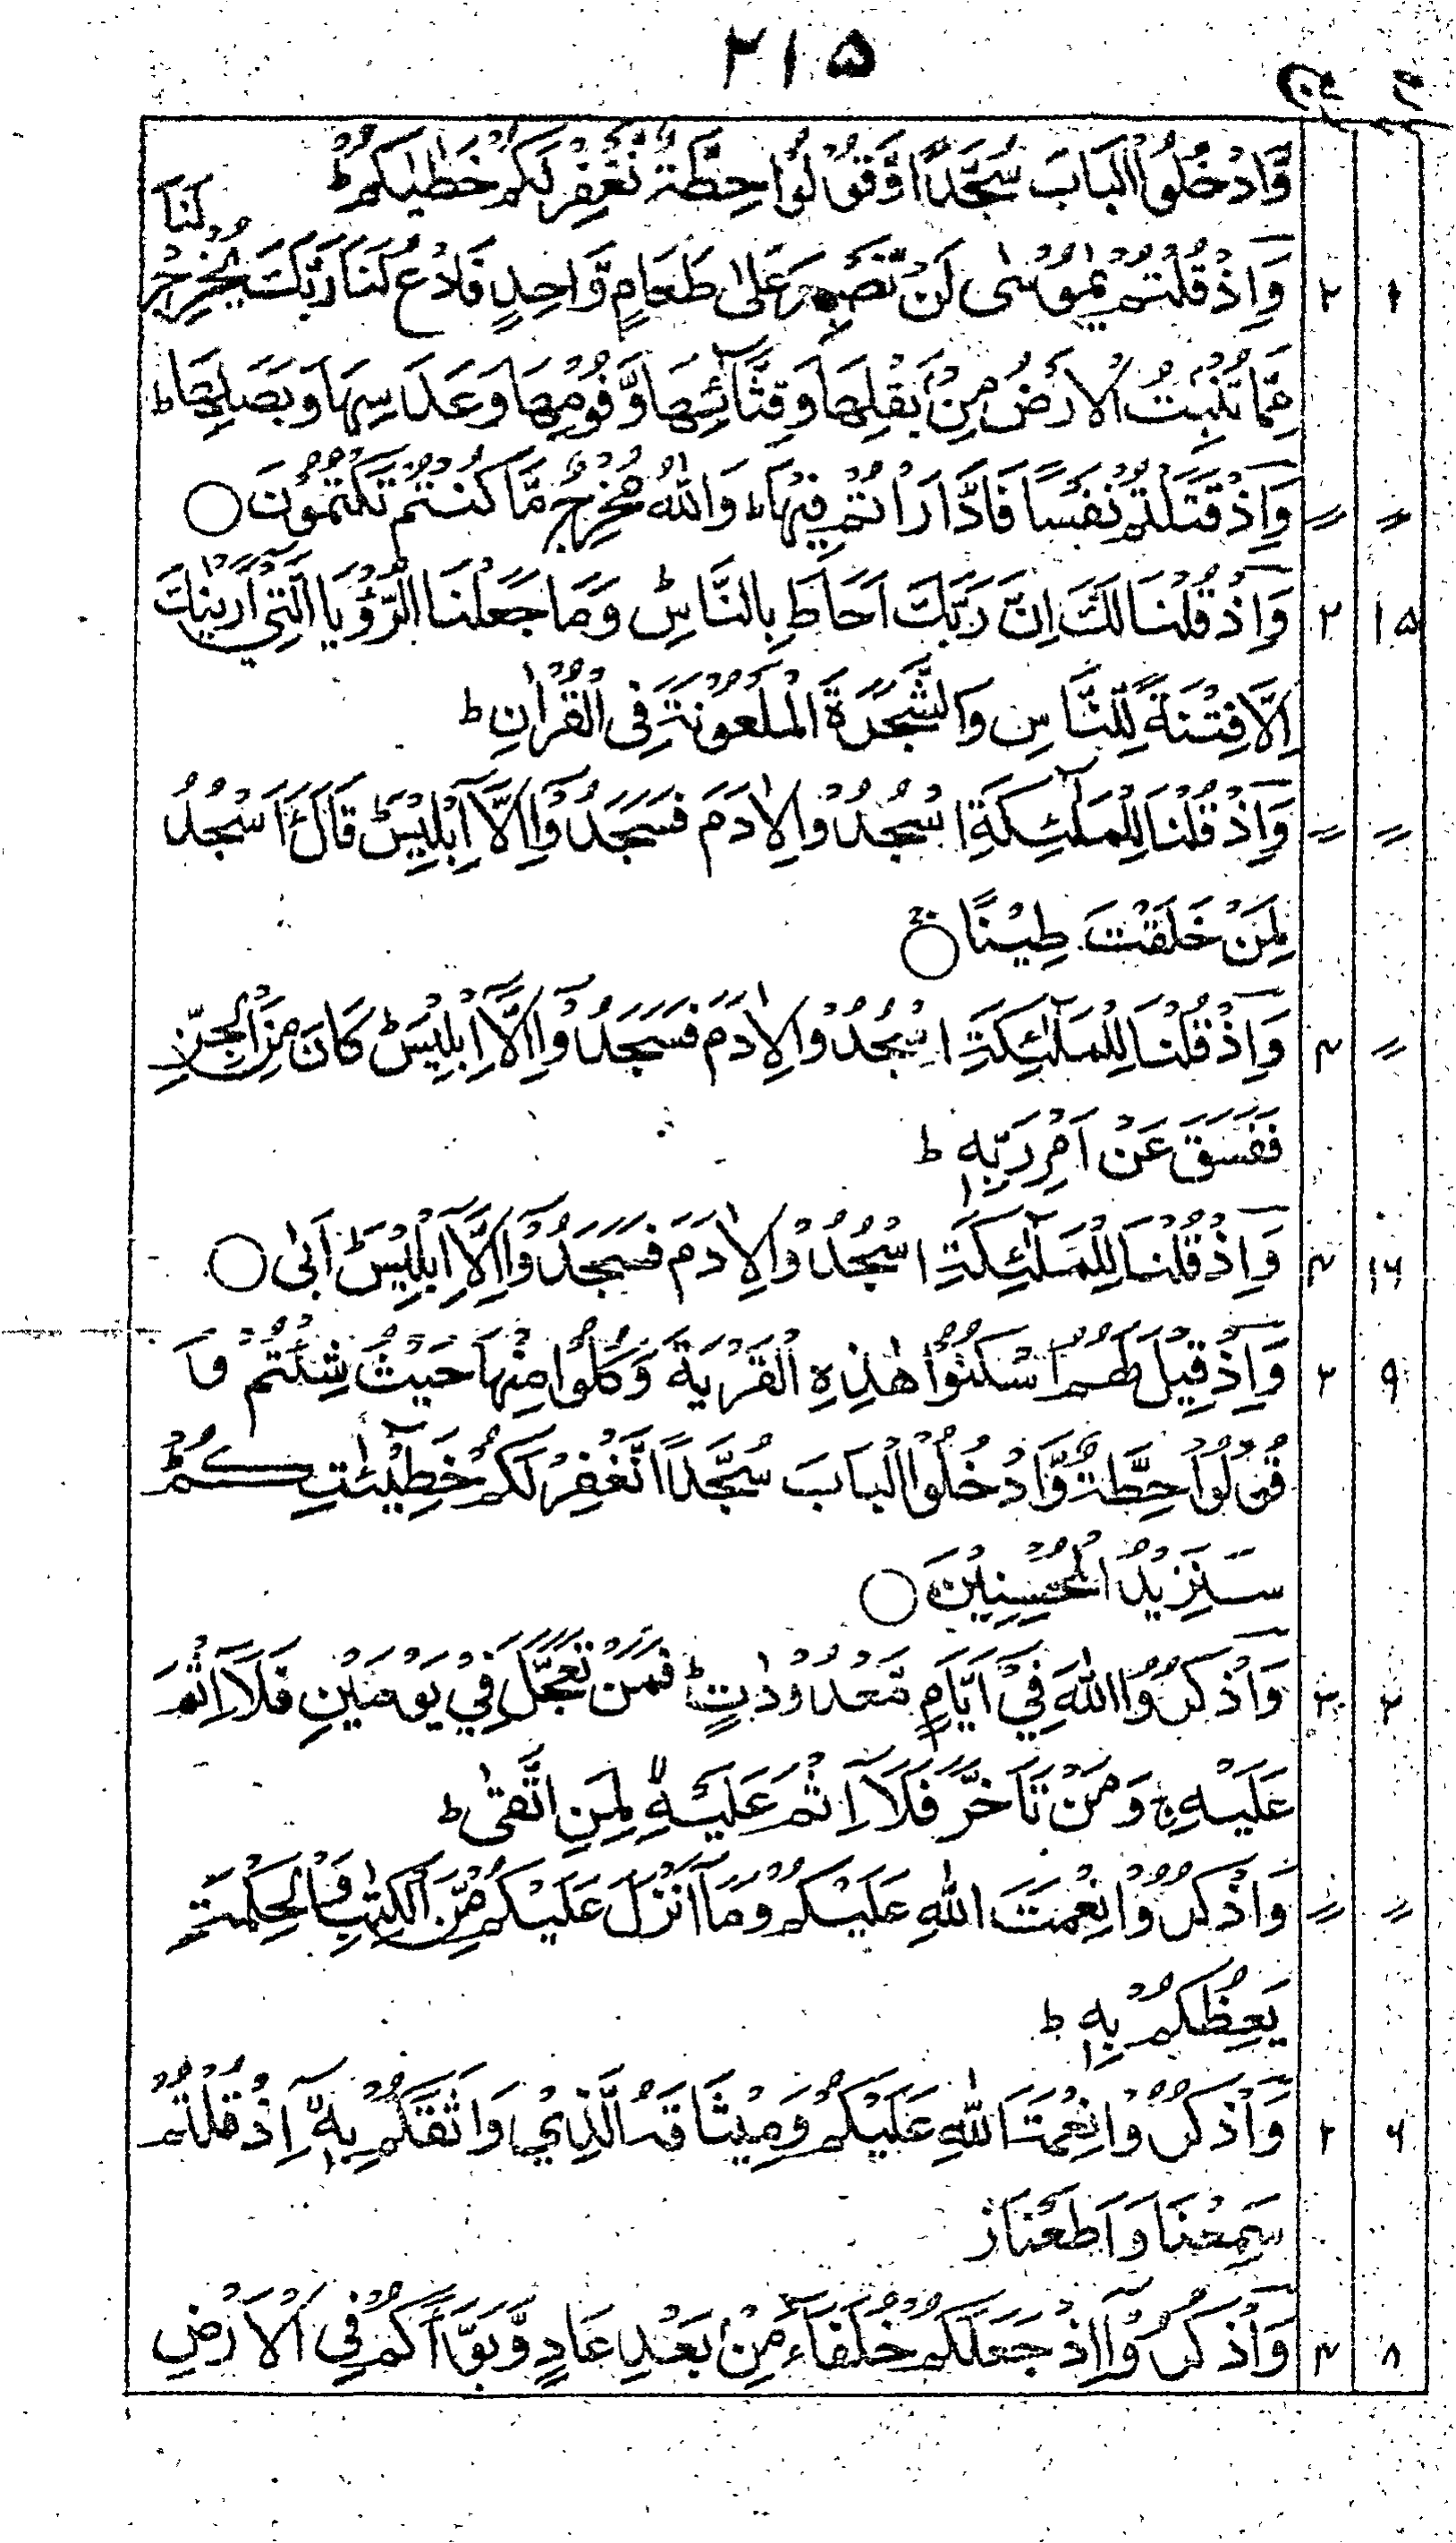 ۲۱۵
وَّادْخُلُوا الْبَابَ سُجَّدًا وَّقُوْلُوْا حِطَّةٌ نَّغْفِرْ لَكُمْ خَطٰيٰكُمْ ط
۱ ۲ وَاِذْ قُلْتُمْ يٰمُوْسٰى لَنْ نَّصْبِرَ عَلٰى طَعَامٍ وَّاحِدٍ فَادْعُ لَنَا رَبَّكَ يُخْرِجْ لَنَا
مِمَّا تُنْۢبِتُ الْاَرْضُ مِنْۢ بَقْلِهَا وَقِثَّآئِهَا وَفُوْمِهَا وَعَدَسِهَا وَبَصَلِهَا ط
〃 〃 وَاِذْ قَتَلْتُمْ نَفْسًا فَادّٰرَءْتُمْ فِيْهَا ط وَاللّٰهُ مُخْرِجٌ مَّا كُنْتُمْ تَكْتُمُوْنَ ○
۱۵ ۲ وَاِذْ قُلْنَا لَكَ اِنَّ رَبَّكَ اَحَاطَ بِالنَّاسِ ط وَمَا جَعَلْنَا الرُّؤْيَا الَّتِيْ اَرَيْنٰكَ
اِلَّا فِتْنَةً لِّلنَّاسِ وَالشَّجَرَةَ الْمَلْعُوْنَةَ فِى الْقُرْاٰنِ ط
〃 〃 وَاِذْ قُلْنَا لِلْمَلٰٓئِكَةِ اسْجُدُوْا لِاٰدَمَ فَسَجَدُوْٓا اِلَّآ اِبْلِيْسَ ط قَالَ ءَاَسْجُدُ
لِمَنْ خَلَقْتَ طِيْنًا ○
〃 ۳ وَاِذْ قُلْنَا لِلْمَلٰٓئِكَةِ اسْجُدُوْا لِاٰدَمَ فَسَجَدُوْٓا اِلَّآ اِبْلِيْسَ ط كَانَ مِنَ الْجِنِّ
فَفَسَقَ عَنْ اَمْرِ رَبِّهٖ ط
۱۶ ۳ وَاِذْ قُلْنَا لِلْمَلٰٓئِكَةِ اسْجُدُوْا لِاٰدَمَ فَسَجَدُوْٓا اِلَّآ اِبْلِيْسَ ط اَبٰى ○
۹ ۲ وَاِذْ قِيْلَ لَهُمُ اسْكُنُوْا هٰذِهِ الْقَرْيَةَ وَكُلُوْا مِنْهَا حَيْثُ شِئْتُمْ وَ
قُوْلُوْا حِطَّةٌ وَّادْخُلُوا الْبَابَ سُجَّدًا نَّغْفِرْ لَكُمْ خَطِيْٓئٰتِكُمْ ط
سَنَزِيْدُ الْمُحْسِنِيْنَ ○
۲ ۲ وَاذْكُرُوا اللّٰهَ فِيْٓ اَيَّامٍ مَّعْدُوْدٰتٍ ط فَمَنْ تَعَجَّلَ فِيْ يَوْمَيْنِ فَلَآ اِثْمَ
عَلَيْهِ ج وَمَنْ تَاَخَّرَ فَلَآ اِثْمَ عَلَيْهِ لا لِمَنِ اتَّقٰى ط
〃 〃 وَاذْكُرُوْا نِعْمَتَ اللّٰهِ عَلَيْكُمْ وَمَآ اَنْزَلَ عَلَيْكُمْ مِّنَ الْكِتٰبِ وَالْحِكْمَةِ
يَعِظُكُمْ بِهٖ ط
۶ ۲ وَاذْكُرُوْا نِعْمَةَ اللّٰهِ عَلَيْكُمْ وَمِيْثَاقَهُ الَّذِيْ وَاثَقَكُمْ بِهٖٓ لا اِذْ قُلْتُمْ
سَمِعْنَا وَاَطَعْنَا ز
۸ ۳ وَاذْكُرُوْٓا اِذْ جَعَلَكُمْ خُلَفَآءَ مِنْۢ بَعْدِ عَادٍ وَّبَوَّاَكُمْ فِى الْاَرْضِ